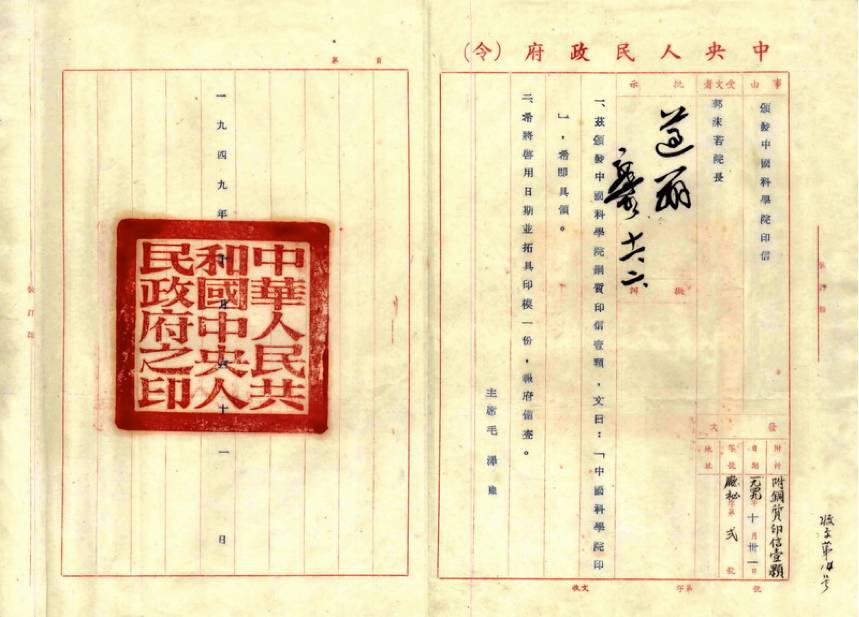 中央人民政府（令）
事由
頒發中國科學院印信
受文者
郭沫若院長
批示
遵辦
十六、二
擬
一、茲頒發中國科學院銅質印信壹顆，文曰：「中國科學院印
」，希即具領。
二、希將啓用日期並拓具印模一份，報府備查。
主席毛澤東
發文
附件
附銅質印信壹顆
日期
一九四九年十月卅一日
字號
廳秘字第弍號
地址
收文第14号
收文 字第 號
第 頁
一九四九年十月三十一日
中華人民共
和國中央人
民政府之印
裝訂線
裝訂線